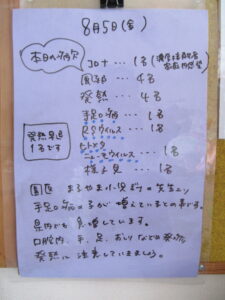 8月5日(金)
本日の病欠
コロナ … 1名 (濃厚接触者
家庭内感染)
風邪 … 4名
発熱 … 4名
手足口病 … 1名
RSウイルス … 1名
ヒトメタ
ニューモウイルス … 1名
様子見 … 1名
発熱早退
1名です
園医 まるやま小児科の先生より
手足口病の子が増えているとの事です。
県内でも急増しています。
口腔内、手、足、おしりなどの発疹、
発熱に注意していきましょう。